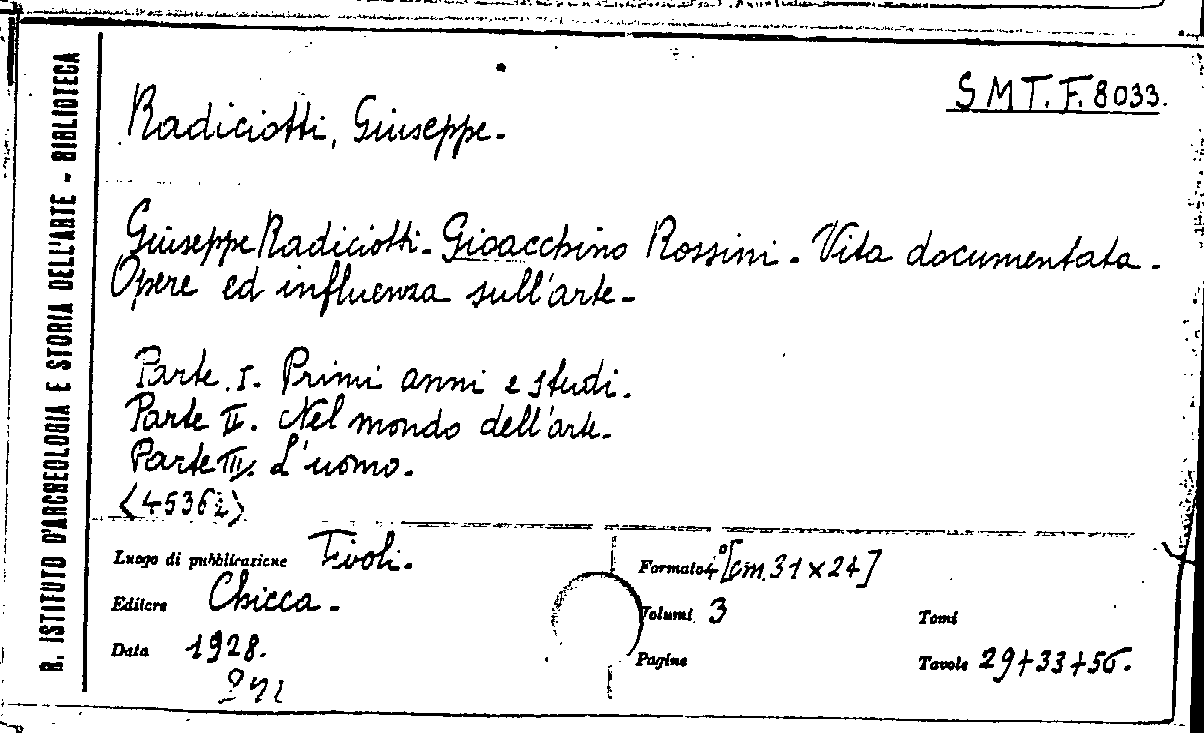 R. ISTITUTO D'ARCHEOLOGIA E STORIA DELL'ARTE - BIBLIOTECA
SMT. F. 8033.
Radiciotti, Giuseppe.
Giuseppe Radiciotti. Gioacchino Rossini. Vita documentata.
Opere ed influenza sull'arte.
Parte I. Primi anni e studi.
Parte II. Nel mondo dell'arte.
Parte III. L'uomo.
Luogo di pubblicazione Tivoli.
Editore Chicca.
Data 1928.
Formato 4° [cm. 31 x 24]
Volumi 3
Tomi
Pagine
Tavole 29+33+56.